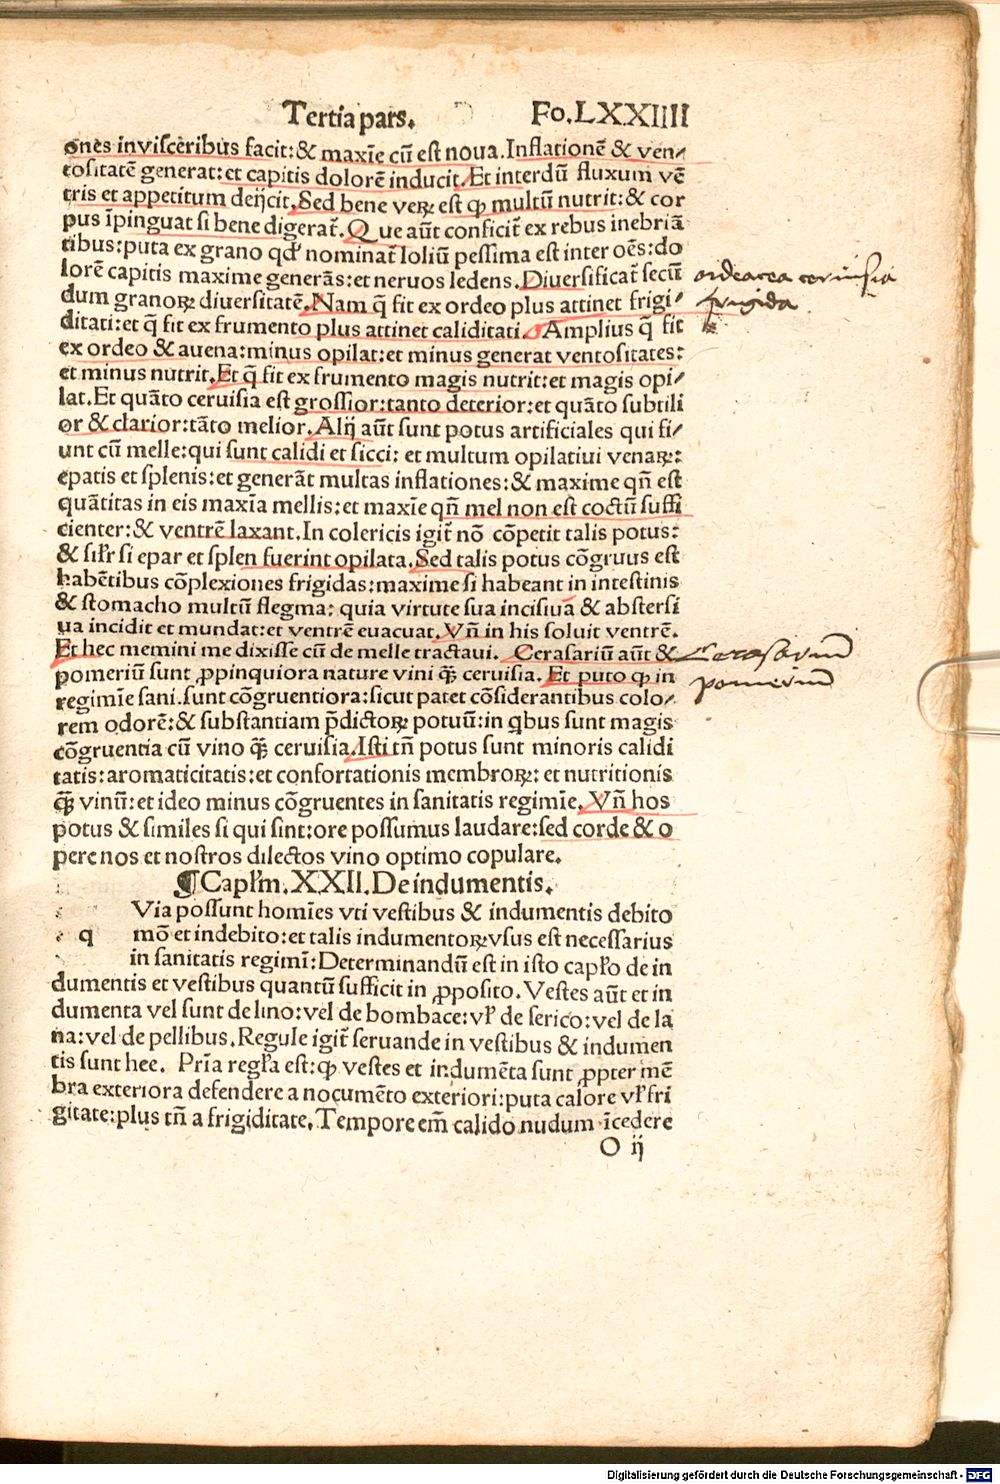 Tertia pars. Fo. LXXIIII
ones in visceribus facit: & maxīe cū est noua. Inflationē & ven⸗
tositatē generat: et capitis dolorē inducit. Et interdū fluxum vē
tris et appetitum deijcit. Sed bene veꝝ est ꝙ multū nutrit: & cor
pus īpinguat si bene digerat̃. Que aūt conficit̃ ex rebus inebriā
tibus: puta ex grano qđ nominat̃ loliū pessima est inter oēs: do
lorē capitis maxime generās: et neruos ledens. Diuersificat̃ secū
dum granoꝝ diuersitatē. Nam q̄ fit ex ordeo plus attinet frigi⸗
ditati: et q̄ fit ex frumento plus attinet caliditati. Amplius q̄ fit
ex ordeo & auena: minus opilat: et minus generat ventositates:
et minus nutrit. Et q̄ fit ex frumento magis nutrit: et magis opi⸗
lat. Et quāto ceruisia est grossior: tanto deterior: et quāto subtili
or & clarior: tāto melior. Alij aūt sunt potus artificiales qui fi⸗
unt cū melle: qui sunt calidi et sicci: et multum opilatiui venaꝝ:
epatis et splenis: et generāt multas inflationes: & maxime qn̄ est
quātitas in eis maxīa mellis: et maxīe qn̄ mel non est coctū suffi
cienter: & ventrē laxant. In colericis igit̃ nō cōpetit talis potus:
& sil̃r si epar et splen fuerint opilata. Sed talis potus cōgruus est
habētibus cōplexiones frigidas: maxime si habeant in intestinis
& stomacho multū flegma: quia virtute sua incisiua & abstersi
ua incidit et mundat: et ventrē euacuat. Vn̄ in his soluit ventrē.
Et hec memini me dixisse cū de melle tractaui. Cerasariū aūt &
pomeriū sunt ꝓpinquiora nature vini q̄ꝫ ceruisia. Et puto ꝙ in
regimīe sani. sunt cōgruentiora: sicut patet cōsiderantibus colo⸗
rem odorē: & substantiam p̄dictoꝝ potuū: in q̇bus sunt magis
cōgruentia cū vino q̄ꝫ ceruisia. Isti tn̄ potus sunt minoris calidi
tatis: aromaticitatis: et confortationis membroꝝ: et nutritionis
q̄ꝫ vinū: et ideo minus cōgruentes in sanitatis regimīe. Vn̄ hos
potus & similes si qui sint: ore possumus laudare: sed corde & o
pere nos et nostros dilectos vino optimo copulare.
¶ Capl̃m. XXII. De indumentis.
Via possunt homīes vti vestibus & indumentis debito
q mō et indebito: et talis indumentoꝝ vsus est necessarius
in sanitatis regimī: Determinandū est in isto capl̃o de in
dumentis et vestibus quantū sufficit in ꝓposito. Vestes aūt et in
dumenta vel sunt de lino: vel de bombace: vl̃ de serico: vel de la
na: vel de pellibus. Regule igit̃ seruande in vestibus & indumen
tis sunt hee. Prīa regl̃a est: ꝙ vestes et indumēta sunt ꝓpter mē
bra exteriora defendere a nocumēto exteriori: puta calore vl̃ fri
gitate: plus tn̄ a frigiditate. Tempore em̄ calido nudum īcedere
O ij
ordeacea ceruisia
frigida
Cerasarium
pomerium
Digitalisierung gefördert durch die Deutsche Forschungsgemeinschaft - DFG